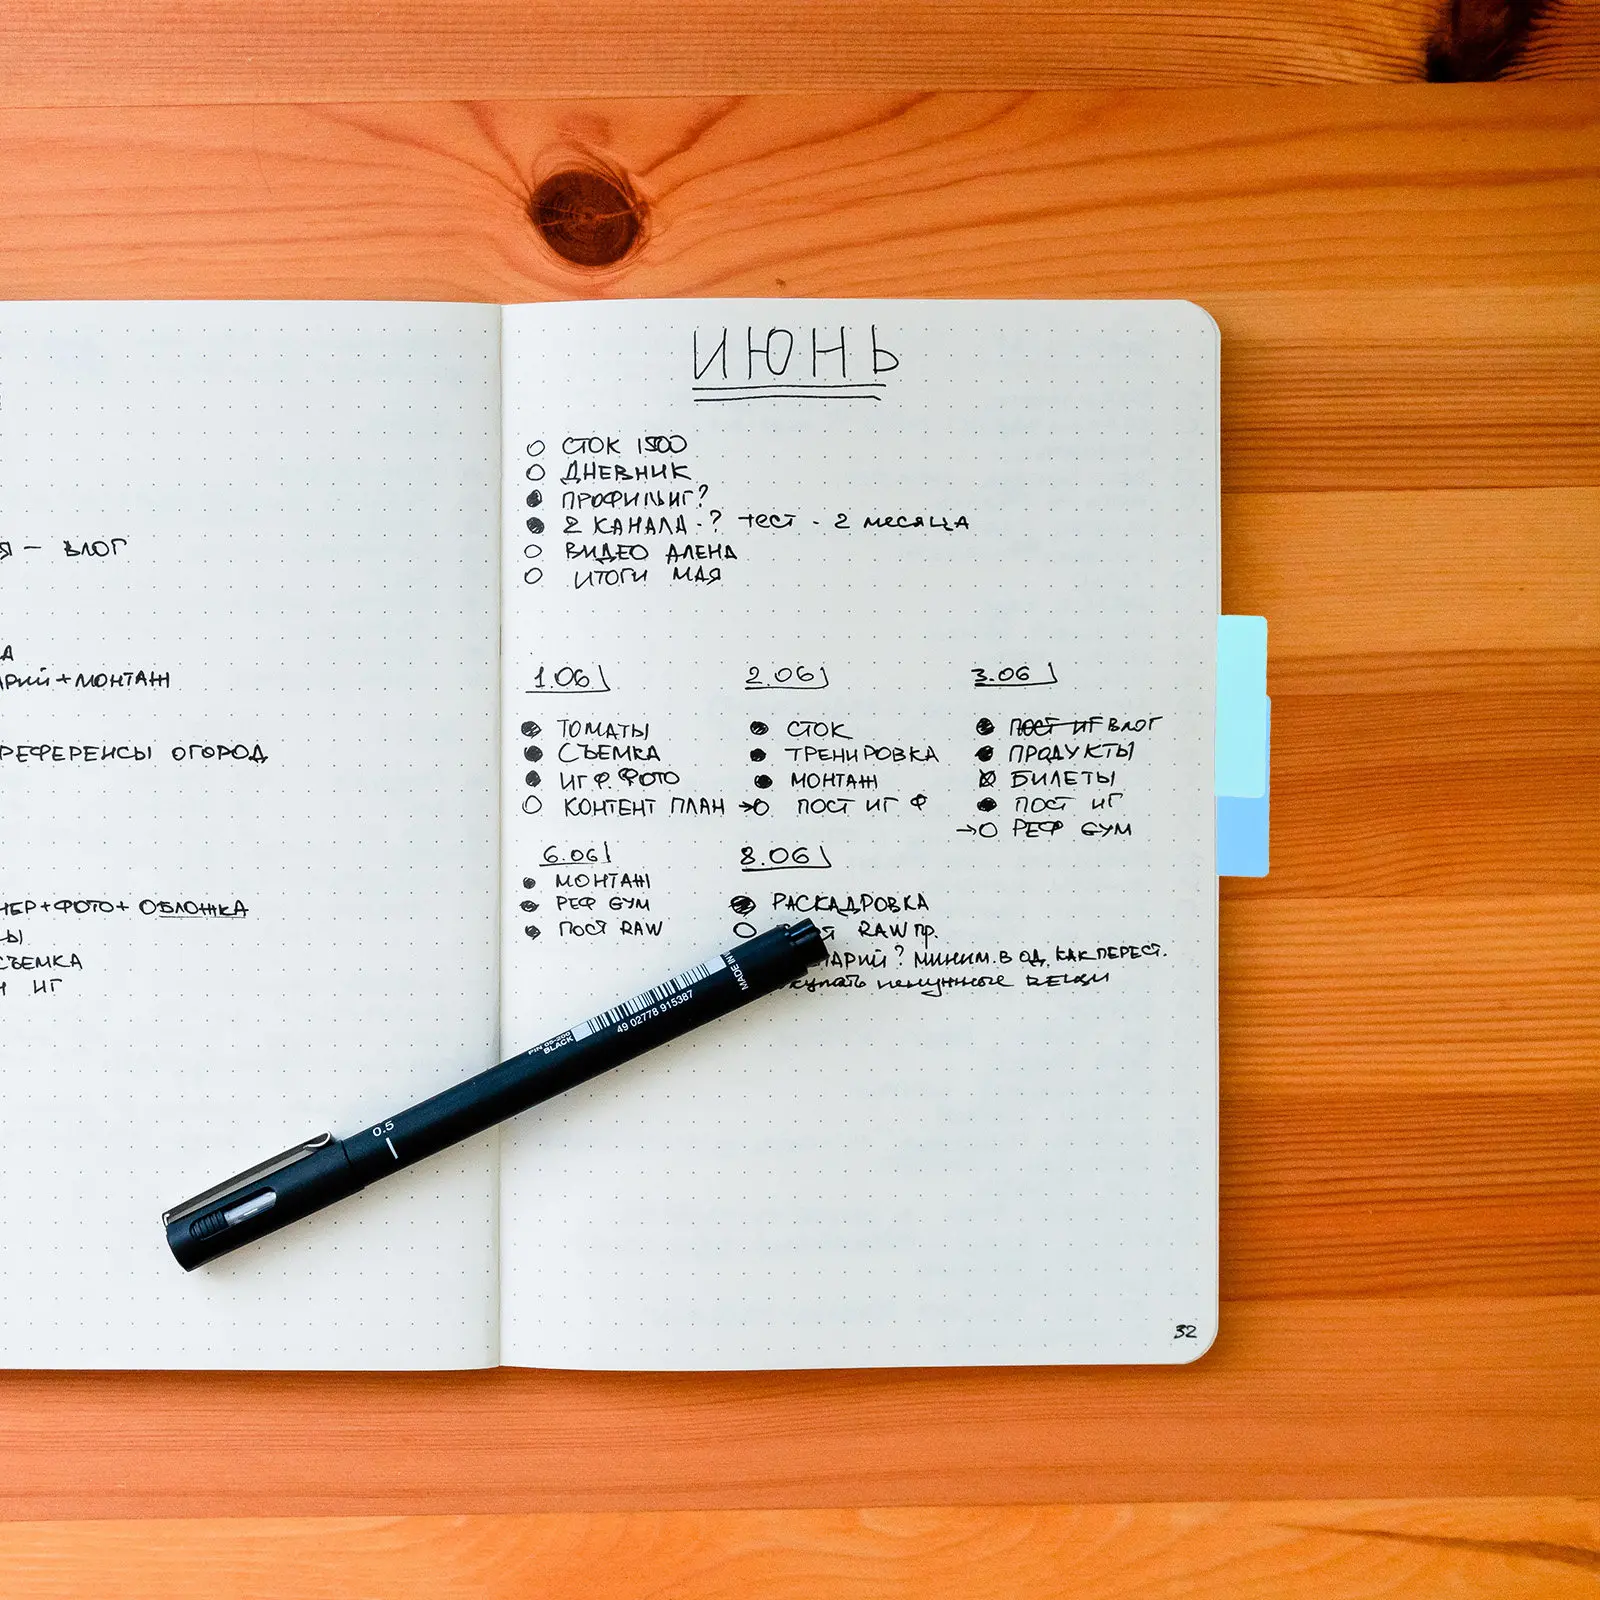 Я — ВЛОГ
А
АРИЙ + МОНТАЖ
РЕФЕРЕНСЫ ОГОРОД
НЕР+ФОТО+ ОБЛОЖКА
СЫ
СЪЕМКА
ИГ
ИЮНЬ
СТОК 1500
ДНЕВНИК
ПРОФИЛЬ ИГ?
2 КАНАЛА - ? ТЕСТ - 2 МЕСЯЦА
ВИДЕО АЛЕНА
ИТОГИ МАЯ
1.06
ТОМАТЫ
СЪЕМКА
ИГ Ф. ФОТО
КОНТЕНТ ПЛАН
2.06
СТОК
ТРЕНИРОВКА
МОНТАЖ
→ ПОСТ ИГ Ф
3.06
ПОСТ ИГ ВЛОГ
ПРОДУКТЫ
БИЛЕТЫ
ПОСТ ИГ
→ РЕФ GYM
6.06
МОНТАЖ
РЕФ GYM
ПОСТ RAW
8.06
РАСКАДРОВКА
RAW ПР.
НАРИЙ? МИНИМ. В ОД. КАК ПЕРЕСТ.
купать ненужные вещи
MADE IN
49 02778 915387
PIN 05-200
BLACK
0.5
32